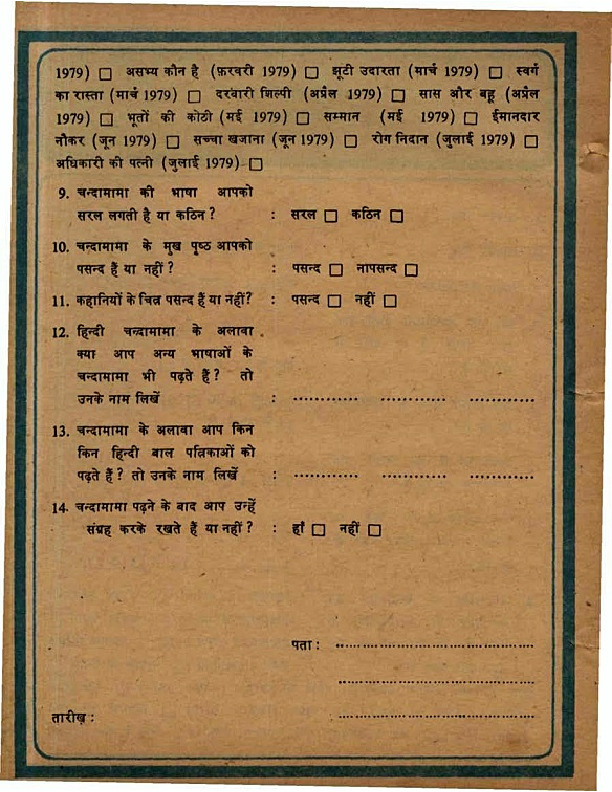 1979) □ असभ्य कौन है (फ़रवरी 1979) □ झूटी उदारता (मार्च 1979) □ स्वर्ग
का रास्ता (मार्च 1979) □ दरबारी शिल्पी (अप्रैल 1979) □ सास और बहू (अप्रैल
1979) □ भूतों की कोठी (मई 1979) □ सम्मान (मई 1979) □ ईमानदार
नौकर (जून 1979) □ सच्चा खजाना (जून 1979) □ रोग निदान (जुलाई 1979) □
अधिकारी की पत्नी (जुलाई 1979) □
9. चन्दामामा की भाषा आपको
सरल लगती है या कठिन ? : सरल □ कठिन □
10. चन्दामामा के मुख पृष्ठ आपको
पसन्द हैं या नहीं ? : पसन्द □ नापसन्द □
11. कहानियों के चित्र पसन्द हैं या नहीं? : पसन्द □ नहीं □
12. हिन्दी चन्दामामा के अलावा
क्या आप अन्य भाषाओं के
चन्दामामा भी पढ़ते हैं ? तो
उनके नाम लिखें : ............ ............ ............
13. चन्दामामा के अलावा आप किन
किन हिन्दी बाल पत्रिकाओं को
पढ़ते हैं ? तो उनके नाम लिखें : ............ ............ ............
14. चन्दामामा पढ़ने के बाद आप उन्हें
संग्रह करके रखते हैं या नहीं ? : हाँ □ नहीं □
पता : ....................................
....................................
तारीख़ : ....................................